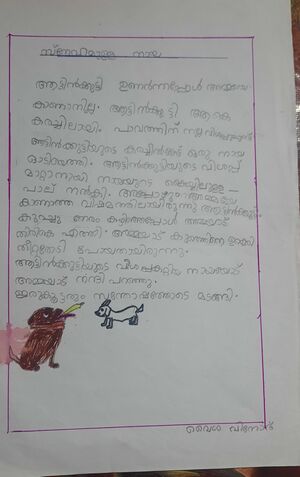 സ്നേഹമുള്ള നായ
ആട്ടിൻകുട്ടി ഉണർന്നപ്പോൾ അമ്മയെ
കാണാനില്ല. ആട്ടിൻകുട്ടി ആകെ
കരച്ചിലായി. പാവത്തിന് നല്ല വിശപ്പുമുണ്ട്
ആട്ടിൻകുട്ടിയുടെ കരച്ചിൽകേട്ട് ഒരു നായ
ഓടിയെത്തി. ആട്ടിൻകുട്ടിയുടെ വിശപ്പ്
മാറ്റാനായി നായയുടെ കൈയ്യിലുള്ള
പാല് നൽകി. അപ്പോഴും അമ്മയെ
കാണാത്ത വിഷമത്തിലായിരുന്നു ആട്ടിൻകുട്ടി.
കുറച്ചു നേരം കഴിഞ്ഞപ്പോൾ അമ്മയാട്
തിരികെ എത്തി. അമ്മയാട് കുഞ്ഞിനെ
തീറ്റതേടി പോയതായിരുന്നു.
ആട്ടിൻകുട്ടിയുടെ വിശപ്പകറ്റിയ നായയോട്
അമ്മയാട് നന്ദി പറഞ്ഞു.
ഇരുകൂട്ടരും സന്തോഷത്തോടെ മടങ്ങി.
വൈഗ വിനോദ്